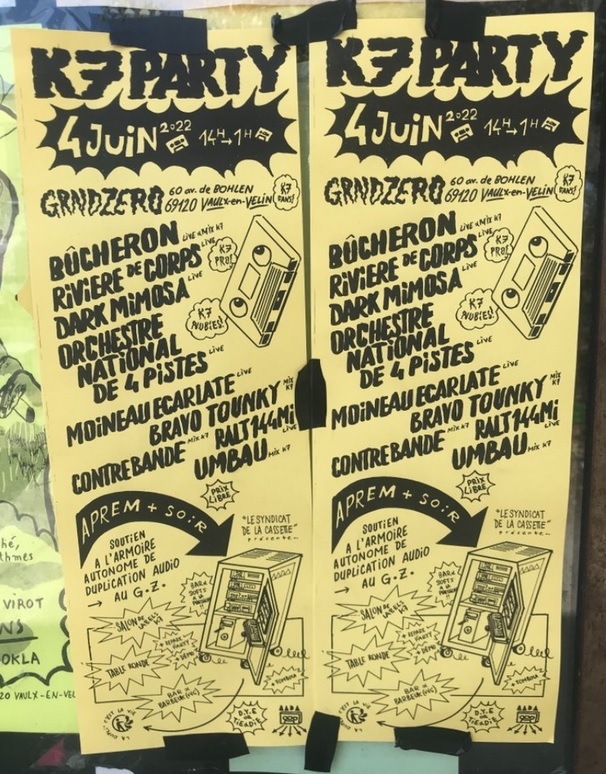 K7 PARTY
4 JUIN 2022 14H→1H
GRNDZERO 60 av. de BOHLEN
69120 VAULX-en-VELIN
BÛCHERON LIVE + MIX K7
RIVIERE DE CORPS LIVE
DARK MIMOSA LIVE
ORCHESTRE
NATIONAL
DE 4 PISTES LIVE
K7 PRO!
K7 NUBIES!
MOINEAU ECARLATE LIVE
BRAVO TOUNKY MIX K7
CONTREBANDE MIX K7 RALT144Mi LIVE
UMBAU MIX K7
PRIX LIBRE
APREM + SO:R
"LE SYNDICAT
DE LA CASSETTE"
présente
SOUTIEN
A L'ARMOIRE
AUTONOME DE
DUPLICATION AUDIO
→ AU G.Z.
SALON DE LABELS K7
+ REPAIR PARTY
+ DÉMO
TABLE RONDE
BAR + BARBEUK (VG)
+ TOMBOLA
D.Y.E or TIE & DIE
K7 PARTY
4 JUIN 2022 14H→1H
GRNDZERO 60 av. de BOHLEN
69120 VAULX-en-VELIN
BÛCHERON LIVE + MIX K7
RIVIERE DE CORPS LIVE
DARK MIMOSA LIVE
ORCHESTRE
NATIONAL
DE 4 PISTES LIVE
K7 PRO!
K7 NUBIES!
MOINEAU ECARLATE LIVE
BRAVO TOUNKY MIX K7
CONTREBANDE MIX K7 RALT144Mi LIVE
UMBAU MIX K7
PRIX LIBRE
APREM + SO:R
"LE SYNDICAT
DE LA CASSETTE"
présente
SOUTIEN
A L'ARMOIRE
AUTONOME DE
DUPLICATION AUDIO
→ AU G.Z.
SALON DE LABELS K7
+ REPAIR PARTY
+ DÉMO
TABLE RONDE
BAR + BARBEUK (VG)
+ TOMBOLA
D.Y.E or TIE & DIE
VIROT
OKLA
20 VAULX-EN-VEL